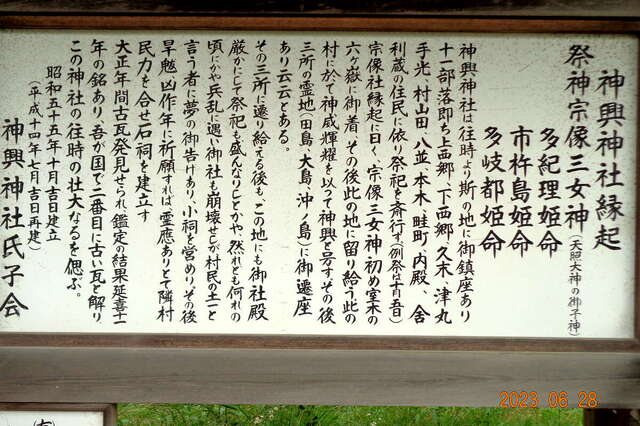 神興神社縁起
祭神宗像三女神(天照大神の御子神)
多紀理姫命
市杵島姫命
多岐都姫命
神興神社は往時より斯の地に御鎮座あり
十一部落即ち上西郷、下西郷、久末、津丸
手光、村山田、八並、本木、畦町、内殿、舎
利蔵の住民に依り祭祀を斉行す(例祭は十月五日)
宗像社縁起に曰く、宗像三女神初め室木の
六ヶ嶽に御着、その後此の地に留り給う此の
村に於て神威輝耀を以って神興と号すその後
三所の霊地(田島、大島、沖ノ島)に御遷座
あり云云とある。
その三所に遷り給える後も、この地にも御社殿
厳かにして祭祀も盛んなりしとかや、然れども何れの
頃にか兵乱に遇い御社も崩壊せしが村民の土一と
言う者に夢の御告けあり、小祠を営めりその後
旱魃凶作年に祈願すれば霊應ありとて隣村
民力を合せ石祠を建立す
大正年間古瓦発見せられ鑑定の結果延喜十一
年の銘あり、吾が国で二番目に古い瓦と解り
この神社の往時の壮大なるを偲ぶ。
昭和五十五年十月吉日建立
(平成十四年七月吉日再建)
神興神社氏子会
2023 06 28